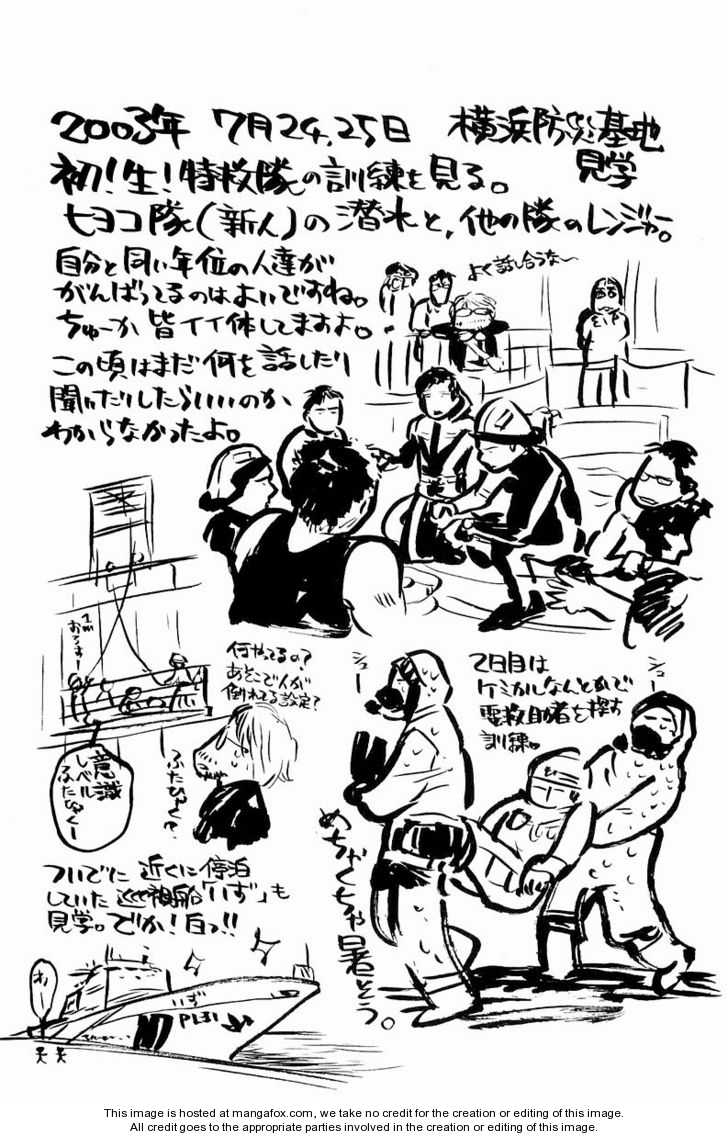 2003年 7月24,25日 横浜防災基地
見学
初!生!特救隊の訓練を見る。
ヒヨコ隊(新人)の潜水と,他の隊のレンジャー。
自分と同い年位の人達が
がんばってるのはよいですね。
ちゅーか 皆イイ体してますよ。
この頃はまだ何を話したり
聞いたりしたらいいのか
わからなかったよ。
よく話し合うな〜
おろすー
意識
レベル
ふたひゃくー
何やってるの?
あそこで人が
倒れてる設定?
ふたひゃく?
シュー
2日目は
ケミカルなんとかで
要救助者を探す
訓練。
シュー
めちゃくちゃ暑そう。
ついでに 近くに停泊
していた 巡視船「いず」も
見学。でか!白っ!!
おー
いず
PL31
This image is hosted at mangafox.com, we take no credit for the creation or editing of this image.
All credit goes to the appropriate parties involved in the creation or editing of this image.